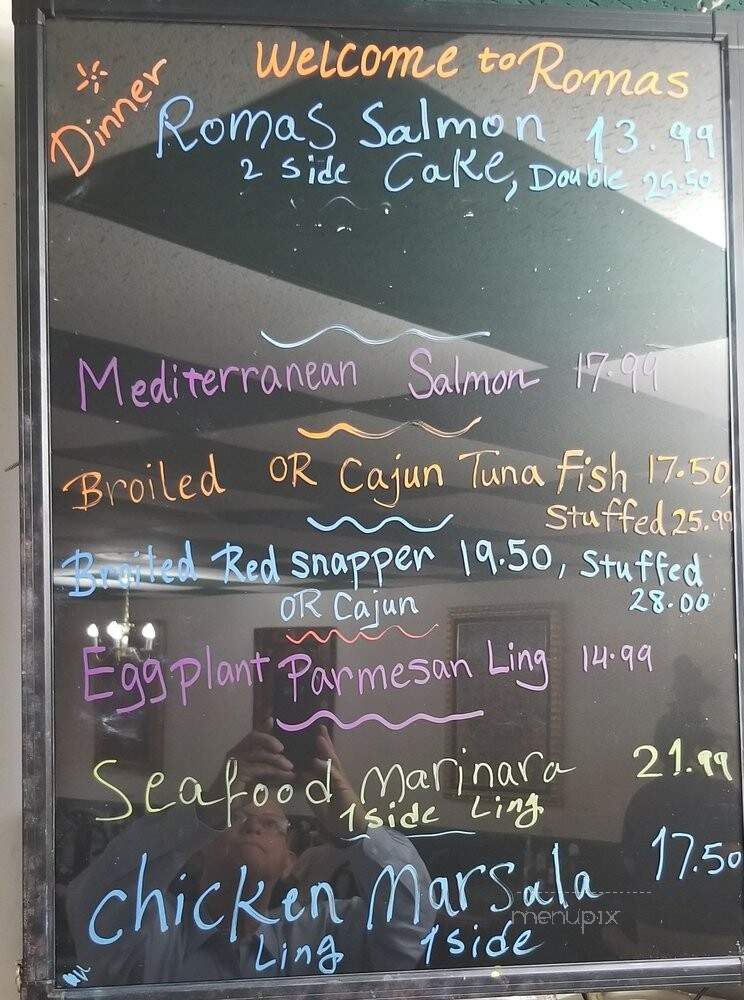 Dinner
Welcome to Romas
Romas Salmon 13.99
2 side Cake, Double 25.50
Mediterranean Salmon 17.99
Broiled OR Cajun Tuna Fish 17.50,
Stuffed 25.99
Broiled Red snapper 19.50, Stuffed
OR Cajun 28.00
Eggplant Parmesan Ling 14.99
Seafood Marinara 21.99
1 side Ling
Chicken Marsala 17.50
Ling 1 side
menupix